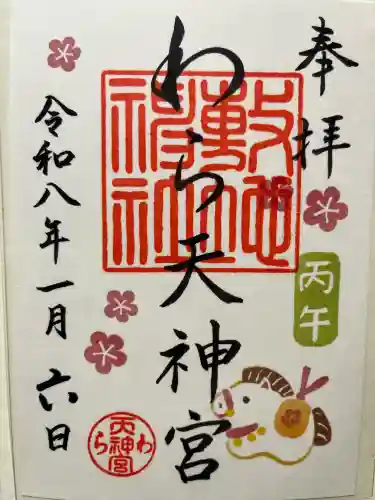 奉拝
丙午
わら天神宮
敷地神社
わら天神宮
令和八年一月六日